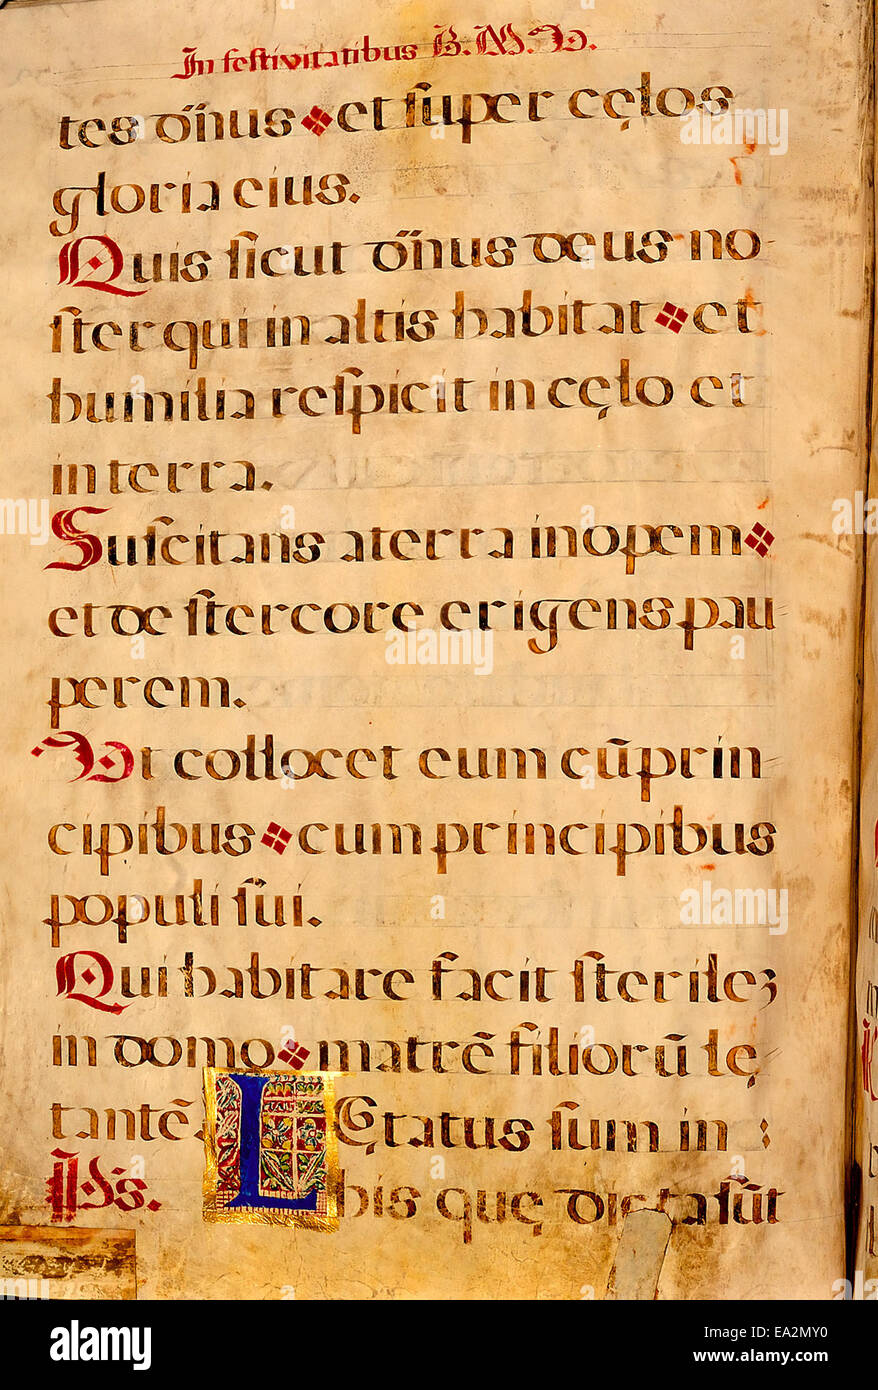 In festivitatibus B. M. V.
tes dn̄us et super cęlos
gloria eius.
Quis sicut dn̄us deus no-
ster qui in altis habitat et
humilia respicit in cęlo et
in terra.
Suscitans a terra inopem
et de stercore erigens pau
perem.
Ut collocet eum cū prin-
cipibus cum principibus
populi sui.
Qui habitare facit sterilez
in domo matrē filiorū lę
tantē.
Ps. LĘtatus sum in :
his quę dicta sūt
alamy
Image ID: EA2MY0
www.alamy.com